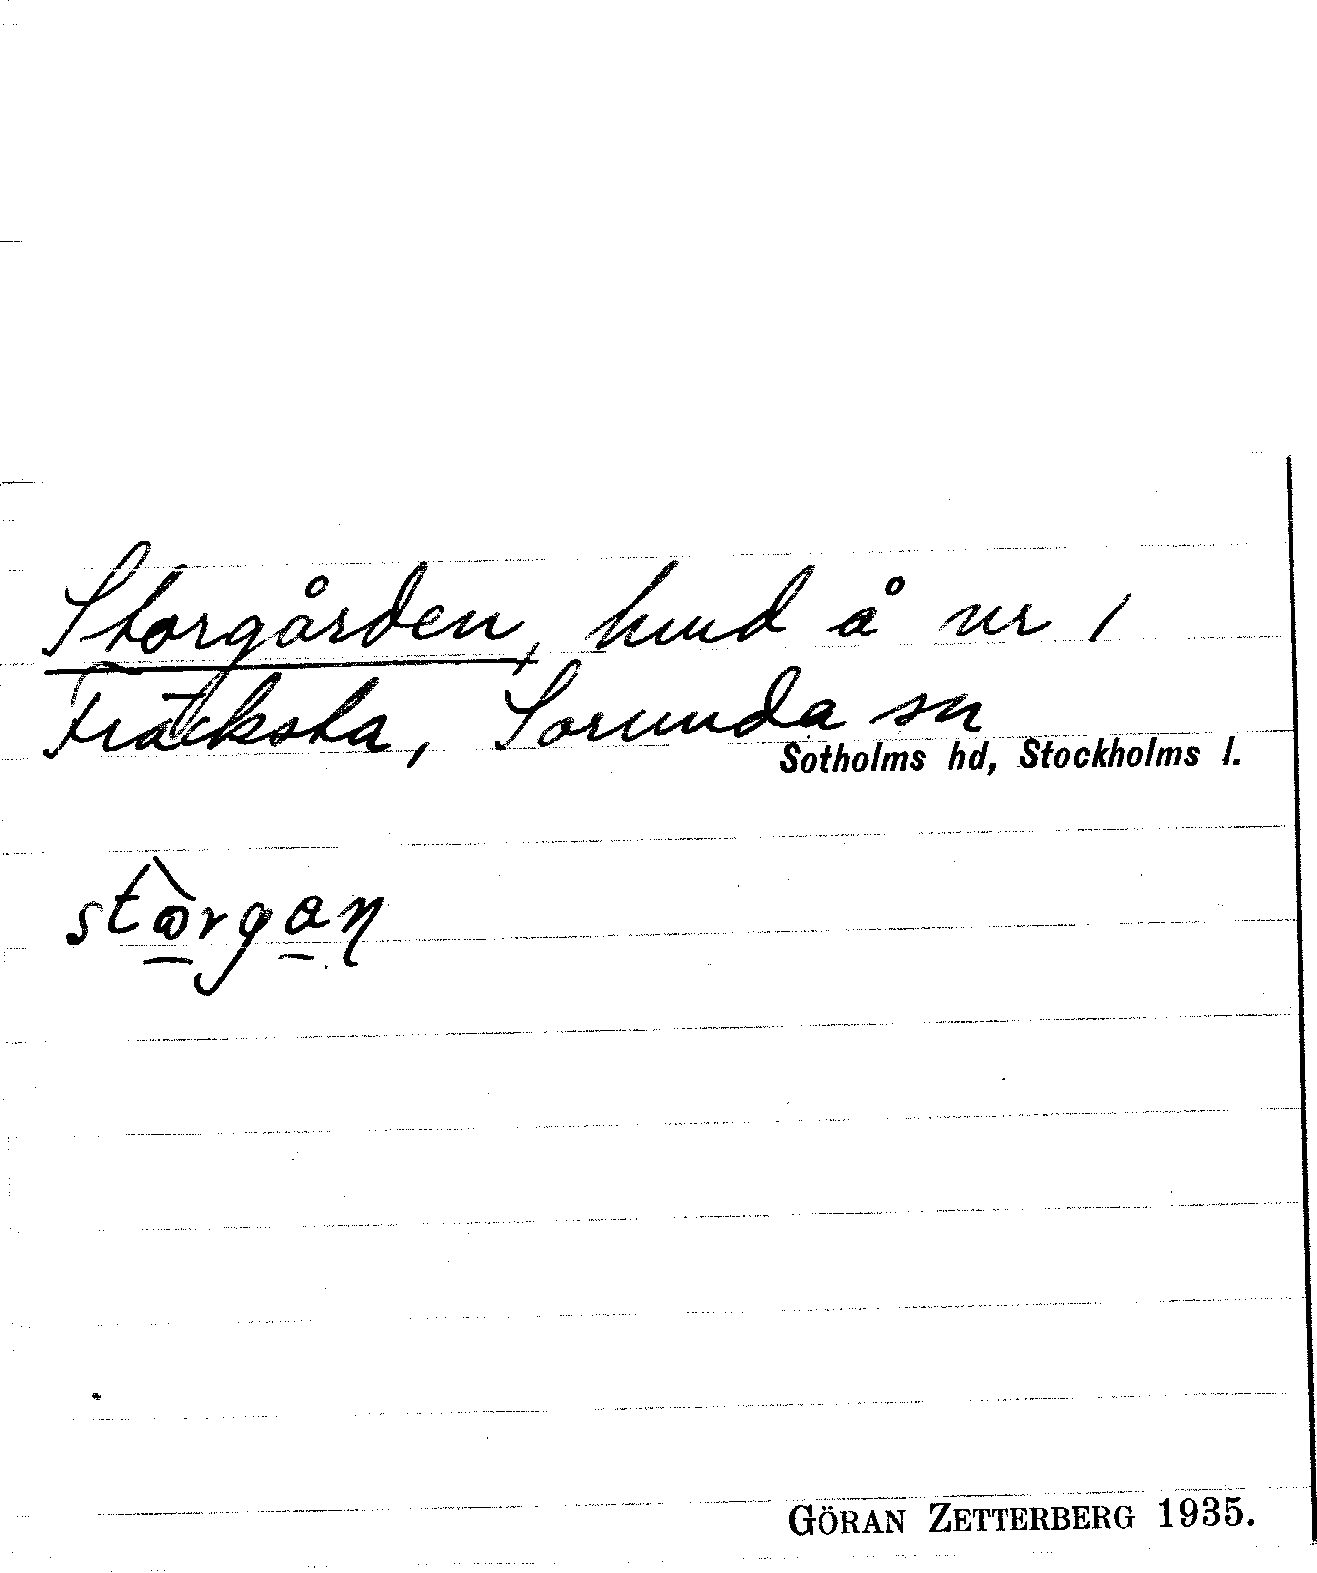 Storgården, hmd å nr 1
Fräcksta, Sorunda sn
Sotholms hd, Stockholms l.
GÖRAN ZETTERBERG 1935.